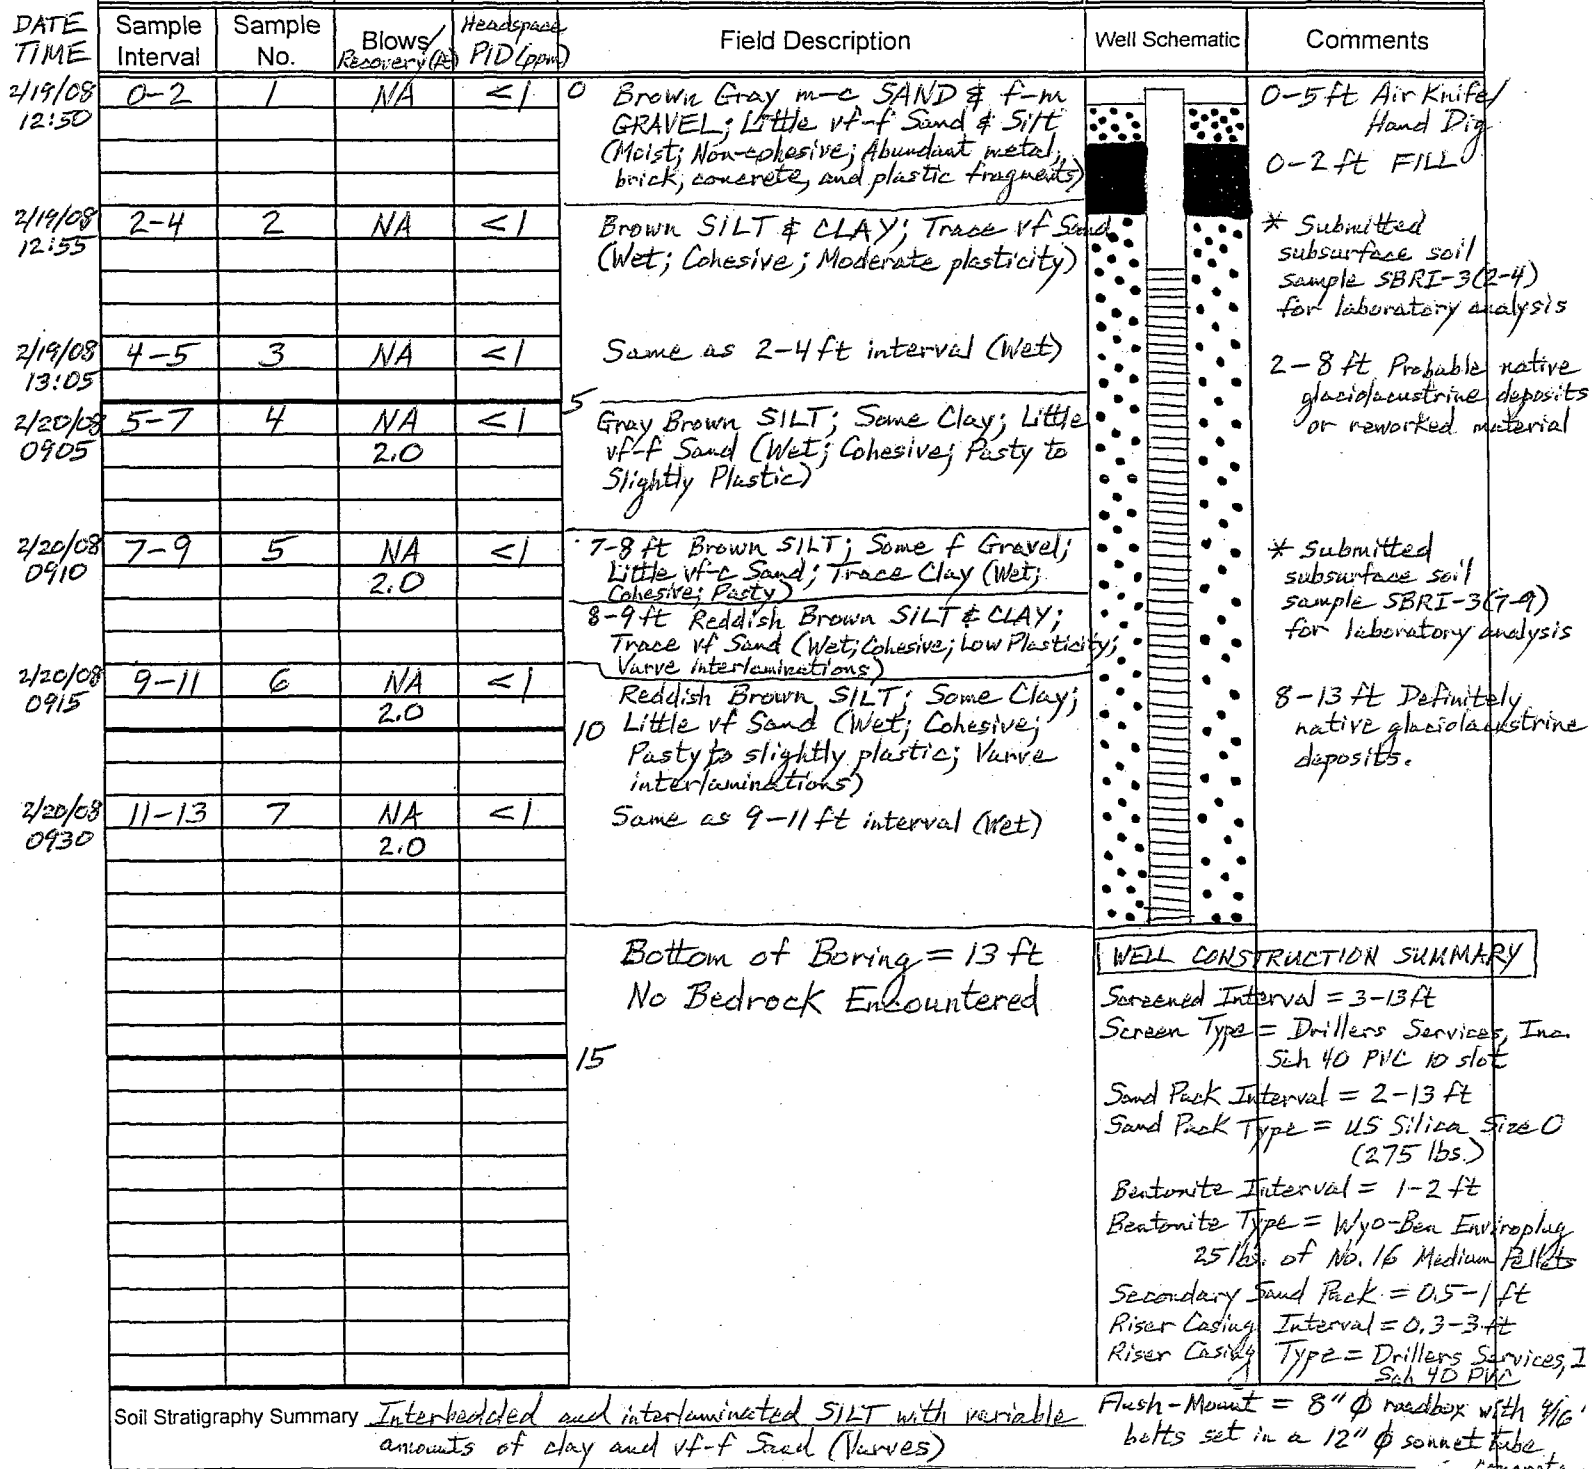 DATE TIME Sample Interval Sample No. Blows/ Recovery (ft) Headspace PID (ppm) Field Description Well Schematic Comments
2/19/08 12:50 0-2 1 NA <1 0
Brown Gray m-c SAND & f-m
GRAVEL; Little vf-f Sand & Silt
(Moist; Non-cohesive; Abundant metal,
brick, concrete, and plastic fragments)
0-5 ft Air Knife/
Hand Dig
0-2 ft FILL
2/19/08 12:55 2-4 2 NA <1
Brown SILT & CLAY; Trace vf Sand
(Wet; Cohesive; Moderate plasticity)
* Submitted
subsurface soil
sample SBRI-3(2-4)
for laboratory analysis
2/19/08 13:05 4-5 3 NA <1
Same as 2-4 ft interval (Wet)
2-8 ft Probable native
glaciolacustrine deposits
or reworked material
5
2/20/08 0905 5-7 4 NA 2.0 <1
Gray Brown SILT; Some Clay; Little
vf-f Sand (Wet; Cohesive; Pasty to
Slightly Plastic)
2/20/08 0910 7-9 5 NA 2.0 <1
7-8 ft Brown SILT; Some f Gravel;
Little vf-c Sand; Trace Clay (Wet;
Cohesive; Pasty)
8-9 ft Reddish Brown SILT & CLAY;
Trace vf Sand (Wet; Cohesive; Low Plasticity;
Varve interlaminations)
* Submitted
subsurface soil
sample SBRI-3(7-9)
for laboratory analysis
2/20/08 0915 9-11 6 NA 2.0 <1
Reddish Brown SILT; Some Clay;
10 Little vf Sand (Wet; Cohesive;
Pasty to slightly plastic; Varve
interlaminations)
8-13 ft Definitely
native glaciolacustrine
deposits.
2/20/08 0930 11-13 7 NA 2.0 <1
Same as 9-11 ft interval (Wet)
Bottom of Boring = 13 ft
No Bedrock Encountered
15
WELL CONSTRUCTION SUMMARY
Screened Interval = 3-13 ft
Screen Type = Drillers Services, Inc.
Sch 40 PVC 10 slot
Sand Pack Interval = 2-13 ft
Sand Pack Type = US Silica Size 0
(275 lbs.)
Bentonite Interval = 1-2 ft
Bentonite Type = Wyo-Ben Enviroplug
25 lbs. of No. 16 Medium Pellets
Secondary Sand Pack = 0.5-1 ft
Riser Casing Interval = 0.3-3 ft
Riser Casing Type = Drillers Services, I
Sch 40 PVC
Soil Stratigraphy Summary Interbedded and interlaminated SILT with variable
amounts of clay and vf-f Sand (Varves)
Flush-Mount = 8" Ø roadbox with 9/16"
bolts set in a 12" Ø sonnet tube